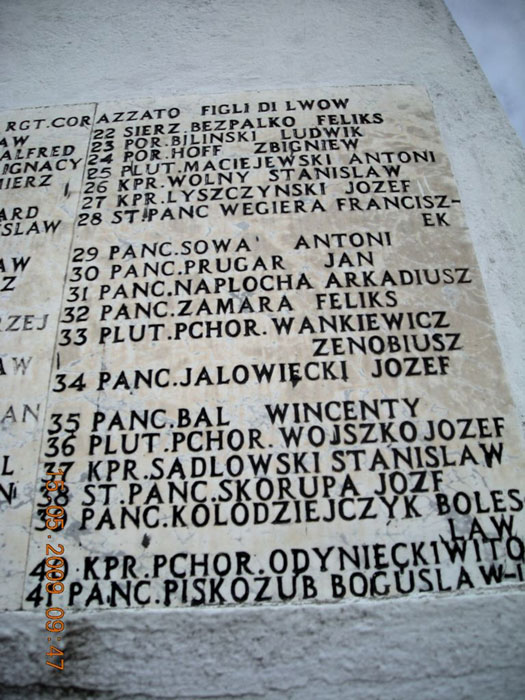 RGT.CORAZZATO FIGLI DI LWOW
AW
ALFRED
IGNACY
MIERZ
ARD
SLAW
AW
Z
RZEJ
AW
AN
L
N
22 SIERZ.BEZPALKO FELIKS
23 POR.BILINSKI LUDWIK
24 POR.HOFF ZBIGNIEW
25 PLUT.MACIEJEWSKI ANTONI
26 KPR.WOLNY STANISLAW
27 KPR.LYSZCZYNSKI JOZEF
28 ST.PANC WEGIERA FRANCISZ-
EK
29 PANC.SOWA' ANTONI
30 PANC.PRUGAR JAN
31 PANC.NAPLOCHA ARKADIUSZ
32 PANC.ZAMARA FELIKS
33 PLUT.PCHOR.WANKIEWICZ
ZENOBIUSZ
34 PANC.JALOWIĘCKI JOZEF
35 PANC.BAL WINCENTY
36 PLUT.PCHOR.WOJSZKO JOZEF
37 KPR.SADLOWSKI STANISLAW
38 ST.PANC.SKORUPA JOZF
39 PANC.KOLODZIEJCZYK BOLES
LAW
40 KPR.PCHOR.ODYNIĘCKI WITO
41 PANC.PISKOZUB BOGUSLAW-I
15.05.2009 09:47